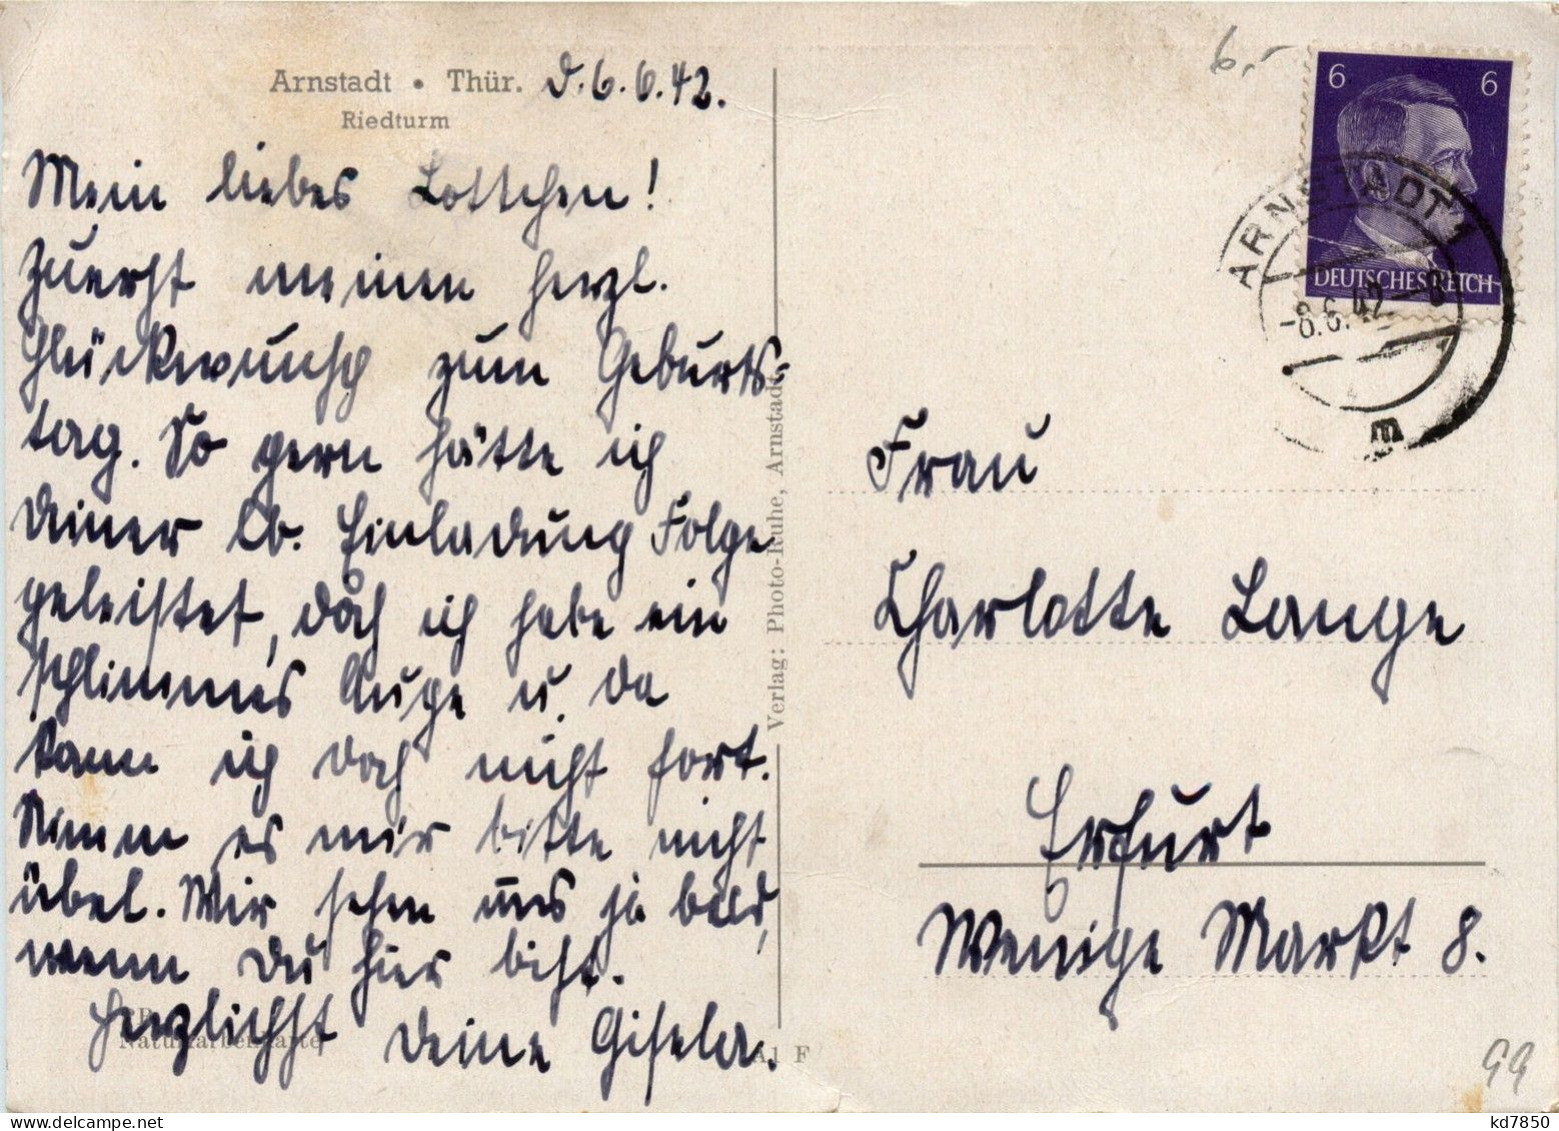 Arnstadt • Thür. d. 6. 6. 42.
Riedturm
Mein liebes Lottchen!
Zuerst meinen herzl.
Glückwunsch zum Geburts-
tag. So gern hätte ich
Deiner lb. Einladung Folge
geleistet, doch ich habe ein
schlimmes Auge u. da
kann ich doch nicht fort.
Nimm es mir bitte nicht
übel. Wir sehen uns ja bald,
wenn Du hier bist.
Herzlichst Deine Gisela.
Naturfarbenkarte
A1 F
Verlag: Photo-Ruhe, Arnstadt
6,-
6 6
DEUTSCHES REICH
ARNSTADT 1
-8.6.42.-8
m
Frau
Charlotte Lange
Erfurt
Wenige Markt 8.
99
kd7850